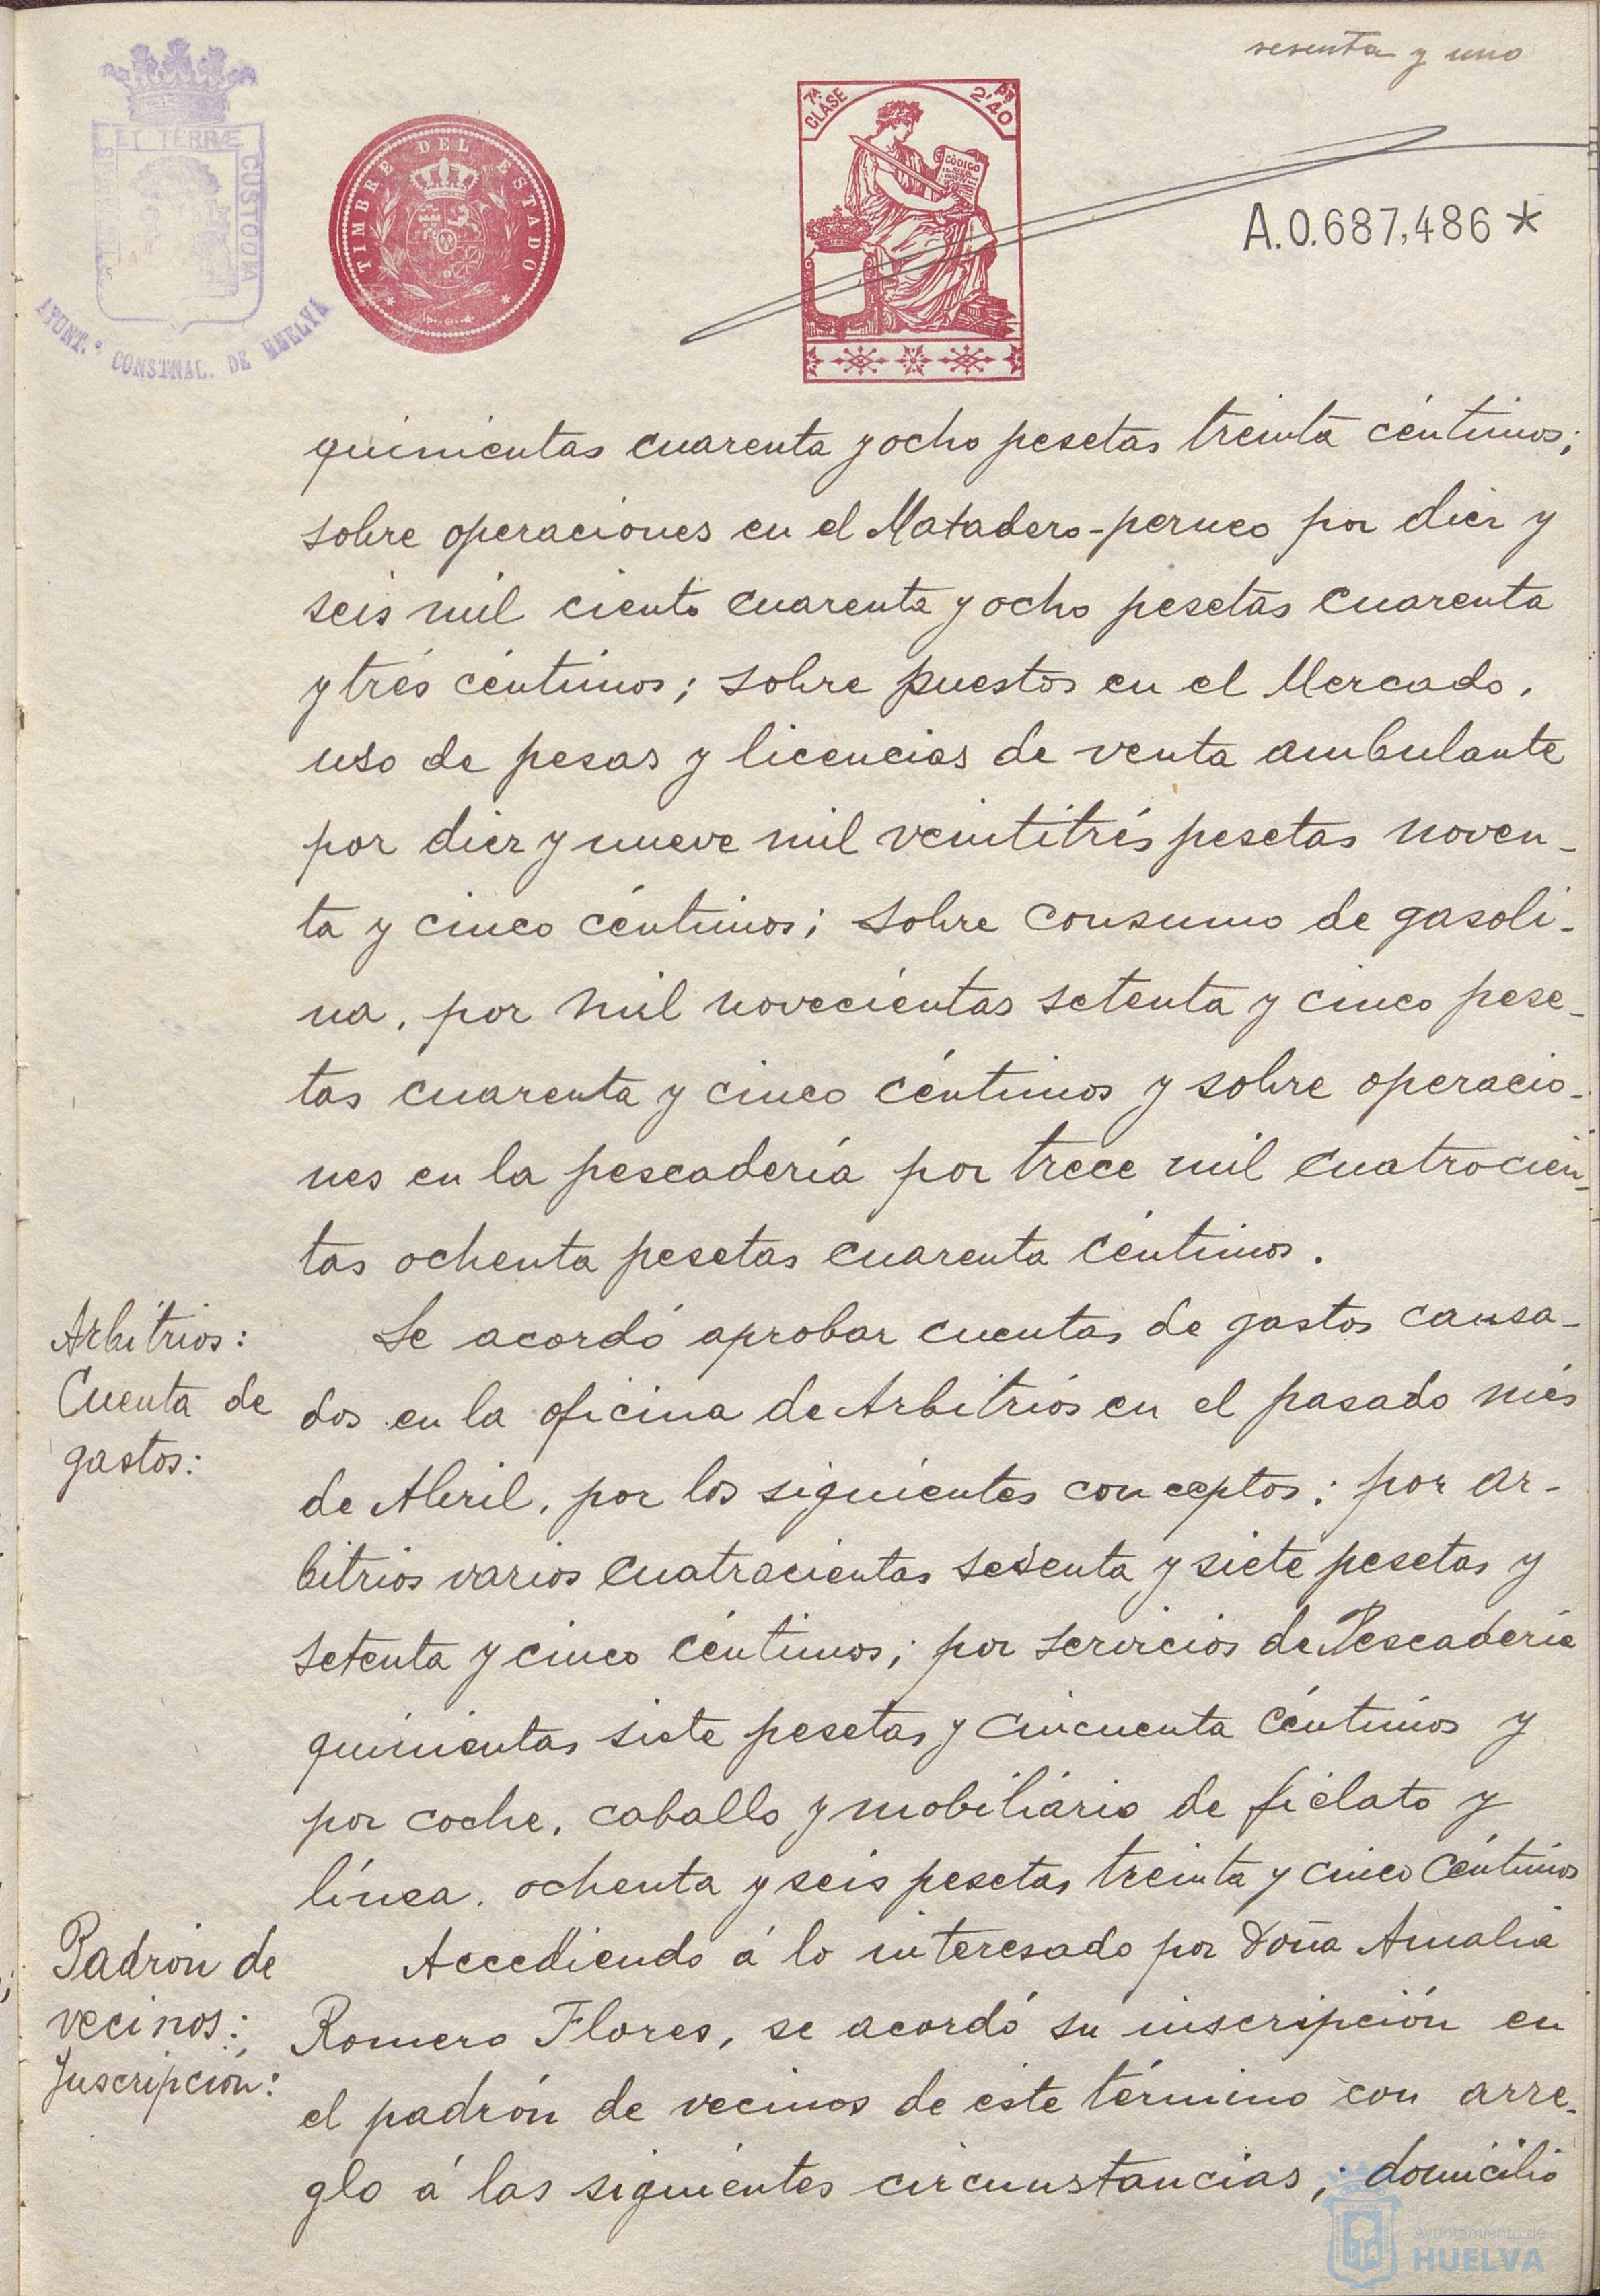 sesenta y uno
ET TERRÆ
CUSTODIA
AYUNT.º CONSTNAL. DE HUELVA
TIMBRE DEL ESTADO
7ª CLASE
2'40 Pts
CÓDIGO
A.0.687,486*
quinientas cuarenta y ocho pesetas treinta céntimos;
sobre operaciones en el Matadero-perneo por diez y
seis mil ciento cuarenta y ocho pesetas cuarenta
y trés céntimos; sobre puestos en el Mercado,
uso de pesas y licencias de venta ambulante
por diez y nueve mil veintitrés pesetas noven-
ta y cinco céntimos; sobre consumo de gasoli-
na, por mil novecientas setenta y cinco pese-
tas cuarenta y cinco céntimos y sobre operacio-
nes en la pescadería por trece mil cuatrocien-
tas ochenta pesetas cuarenta céntimos.
Arbitrios:
Cuenta de
gastos:
Se acordó aprobar cuentas de gastos causa-
dos en la oficina de Arbitrios en el pasado mes
de Abril, por los siguientes conceptos: por ar-
bitrios varios cuatrocientas sesenta y siete pesetas y
setenta y cinco céntimos; por servicios de Pescadería
quinientas siete pesetas y cincuenta céntimos y
por coche, caballo y mobiliario de fielato y
línea, ochenta y seis pesetas treinta y cinco céntimos
Padrón de
vecinos:
Inscripción:
Accediendo á lo interesado por Doña Amalia
Romero Flores, se acordó su inscripción en
el padrón de vecinos de este término con arre-
glo á las siguientes circunstancias; domicilio
Ayuntamiento de
HUELVA